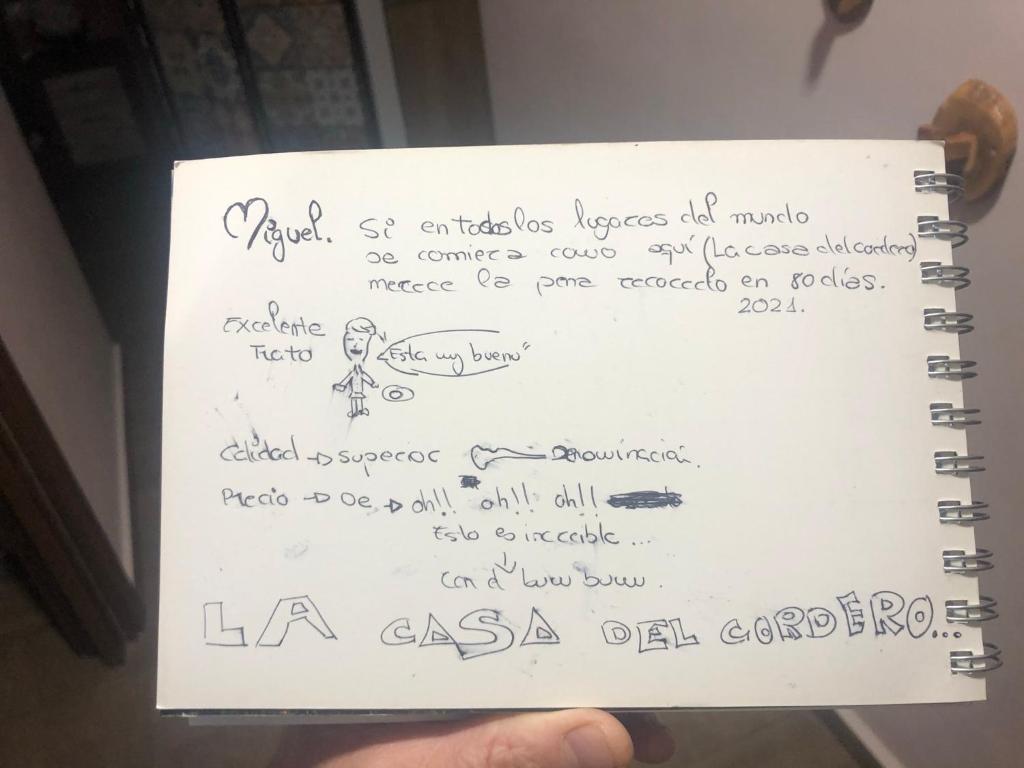 Miguel. Si en todos los lugares del mundo
se comiera como aquí (La casa del cordero)
merece la pena recorrerlo en 80 días.
2021.
Excelente
Trato
"Esta muy bueno"
Calidad → superor Denominación.
Precio → De → oh!! oh!! oh!!
Esto es increible ...
↓
Con d bum bum.
LA CASA DEL CORDERO...